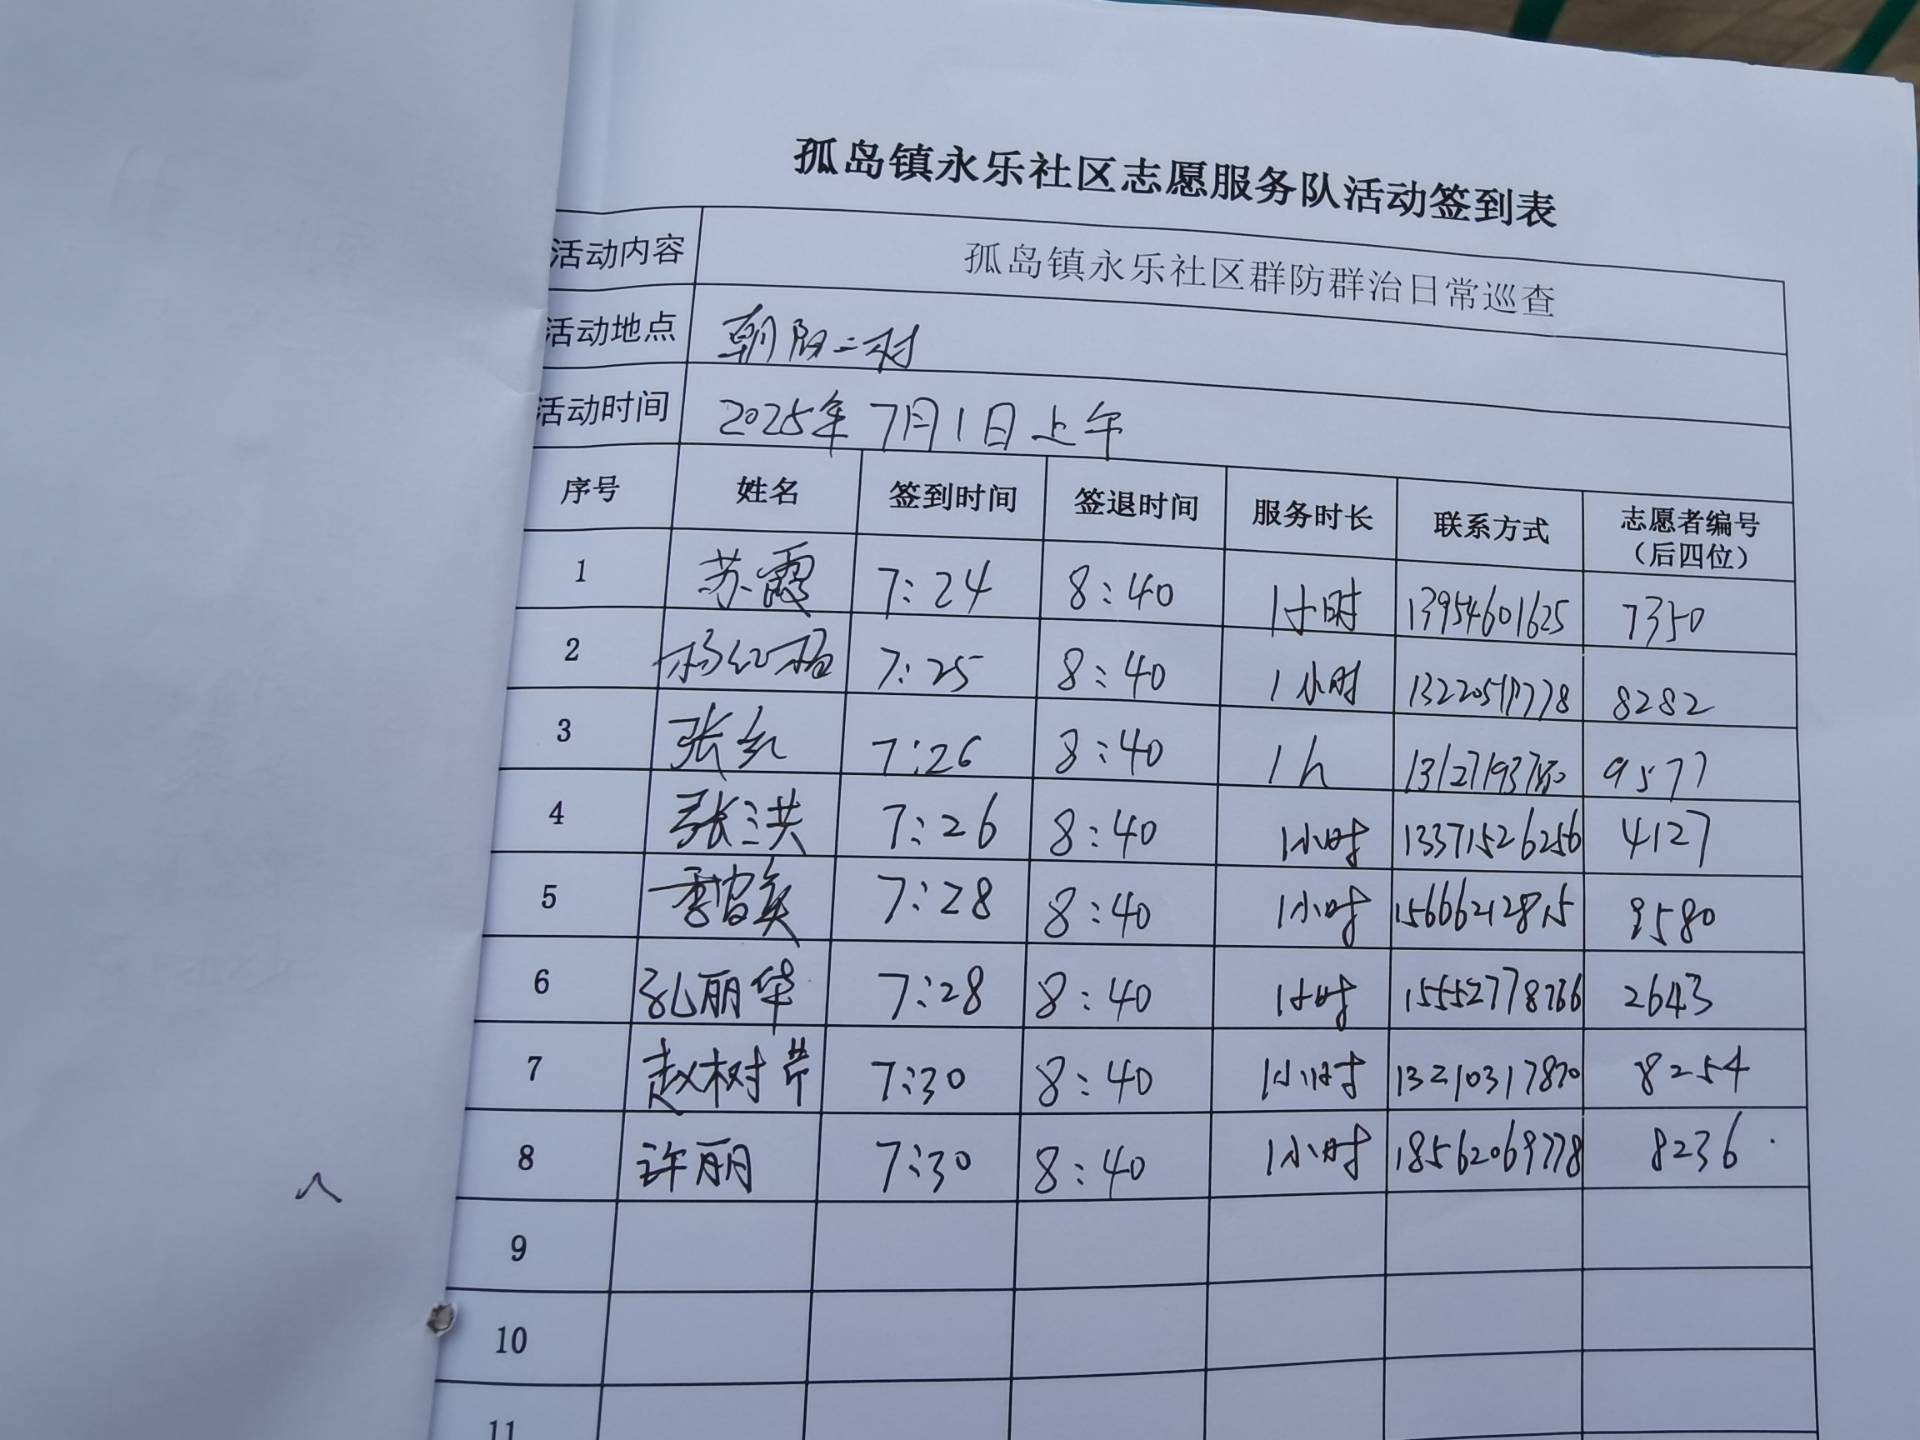 孤岛镇永乐社区志愿服务队活动签到表
活动内容 孤岛镇永乐社区群防群治日常巡查
活动地点 朝阳二村
活动时间 2025年7月1日上午
序号 姓名 签到时间 签退时间 服务时长 联系方式 志愿者编号（后四位）
1 苏霞 7:24 8:40 1小时 13954601625 7350
2 7:25 8:40 1小时 8282
3 张红 7:26 8:40 1h 9577
4 张洪 7:26 8:40 1小时 13371526256 4127
5 7:28 8:40 1小时 15666212815 9580
6 孔丽华 7:28 8:40 1小时 2643
7 赵树芹 7:30 8:40 1小时 13210317870 8254
8 许丽 7:30 8:40 1小时 18562069778 8236
9
10
11